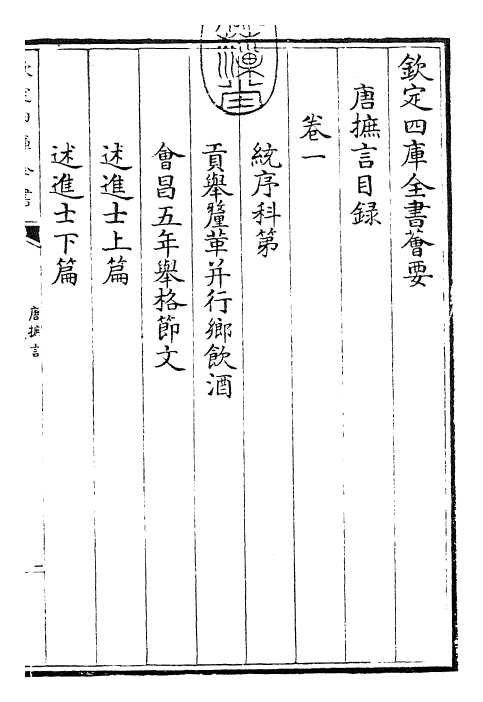 欽定四庫全書薈要
唐摭言目録
卷一
統序科第
貢舉釐革并行鄉飲酒
會昌五年舉格節文
述進士上篇
述進士下篇
欽定四庫全書
唐摭言